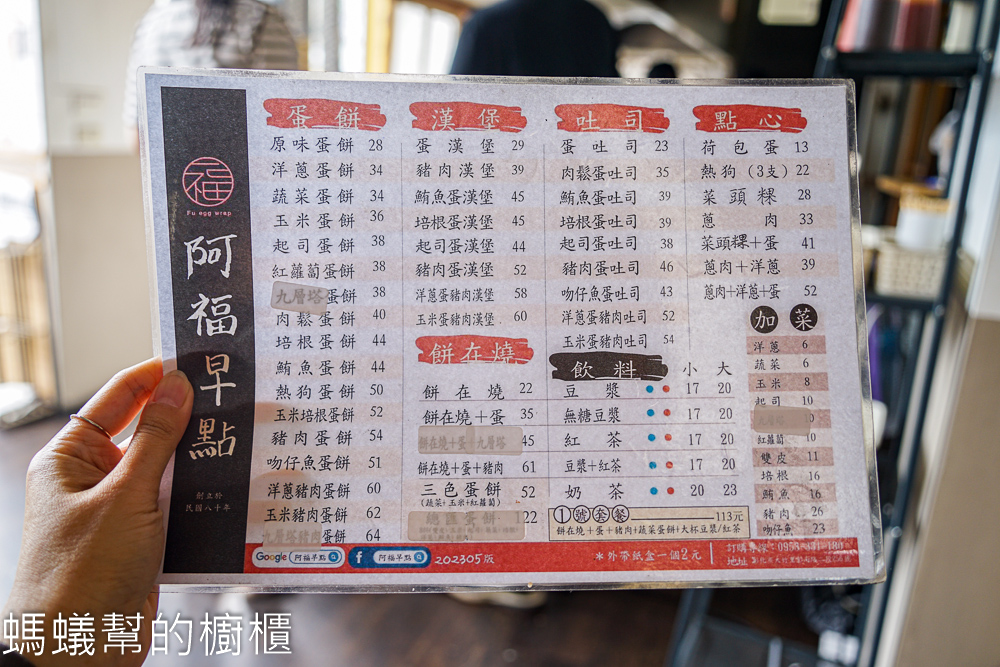 福
Fu egg wrap
阿福早點
創立於
民國八十年
蛋餅
原味蛋餅 28
洋蔥蛋餅 34
蔬菜蛋餅 34
玉米蛋餅 36
起司蛋餅 38
紅蘿蔔蛋餅 38
九層塔蛋餅 38
肉鬆蛋餅 40
培根蛋餅 44
鮪魚蛋餅 44
熱狗蛋餅 50
玉米培根蛋餅 52
豬肉蛋餅 54
吻仔魚蛋餅 51
洋蔥豬肉蛋餅 60
玉米豬肉蛋餅 62
九層塔豬肉蛋餅 64
漢堡
蛋漢堡 29
豬肉漢堡 39
鮪魚蛋漢堡 45
培根蛋漢堡 45
起司蛋漢堡 44
豬肉蛋漢堡 52
洋蔥蛋豬肉漢堡 58
玉米蛋豬肉漢堡 60
餅在燒
餅在燒 22
餅在燒+蛋 35
餅在燒+蛋+九層塔 45
餅在燒+蛋+豬肉 61
三色蛋餅 52
(蔬菜+玉米+紅蘿蔔)
總匯蛋餅 122
吐司
蛋吐司 23
肉鬆蛋吐司 35
鮪魚蛋吐司 39
培根蛋吐司 39
起司蛋吐司 38
豬肉蛋吐司 46
吻仔魚蛋吐司 43
洋蔥蛋豬肉吐司 52
玉米蛋豬肉吐司 54
飲料 小 大
豆漿 17 20
無糖豆漿 17 20
紅茶 17 20
豆漿+紅茶 17 20
奶茶 20 23
①號套餐 113元
餅在燒+蛋+豬肉+蔬菜蛋餅+大杯豆漿/紅茶
點心
荷包蛋 13
熱狗(3支) 22
菜頭粿 28
蔥肉 33
菜頭粿+蛋 41
蔥肉+洋蔥 39
蔥肉+洋蔥+蛋 52
加菜
洋蔥 6
蔬菜 6
玉米 8
起司 10
紅蘿蔔 10
雙皮 11
培根 16
鮪魚 16
豬肉 26
吻仔魚 23
Google 阿福早點
f 阿福早點
202305版
*外帶紙盒一個2元
訂購專線:
地址
螞蟻幫的櫥櫃